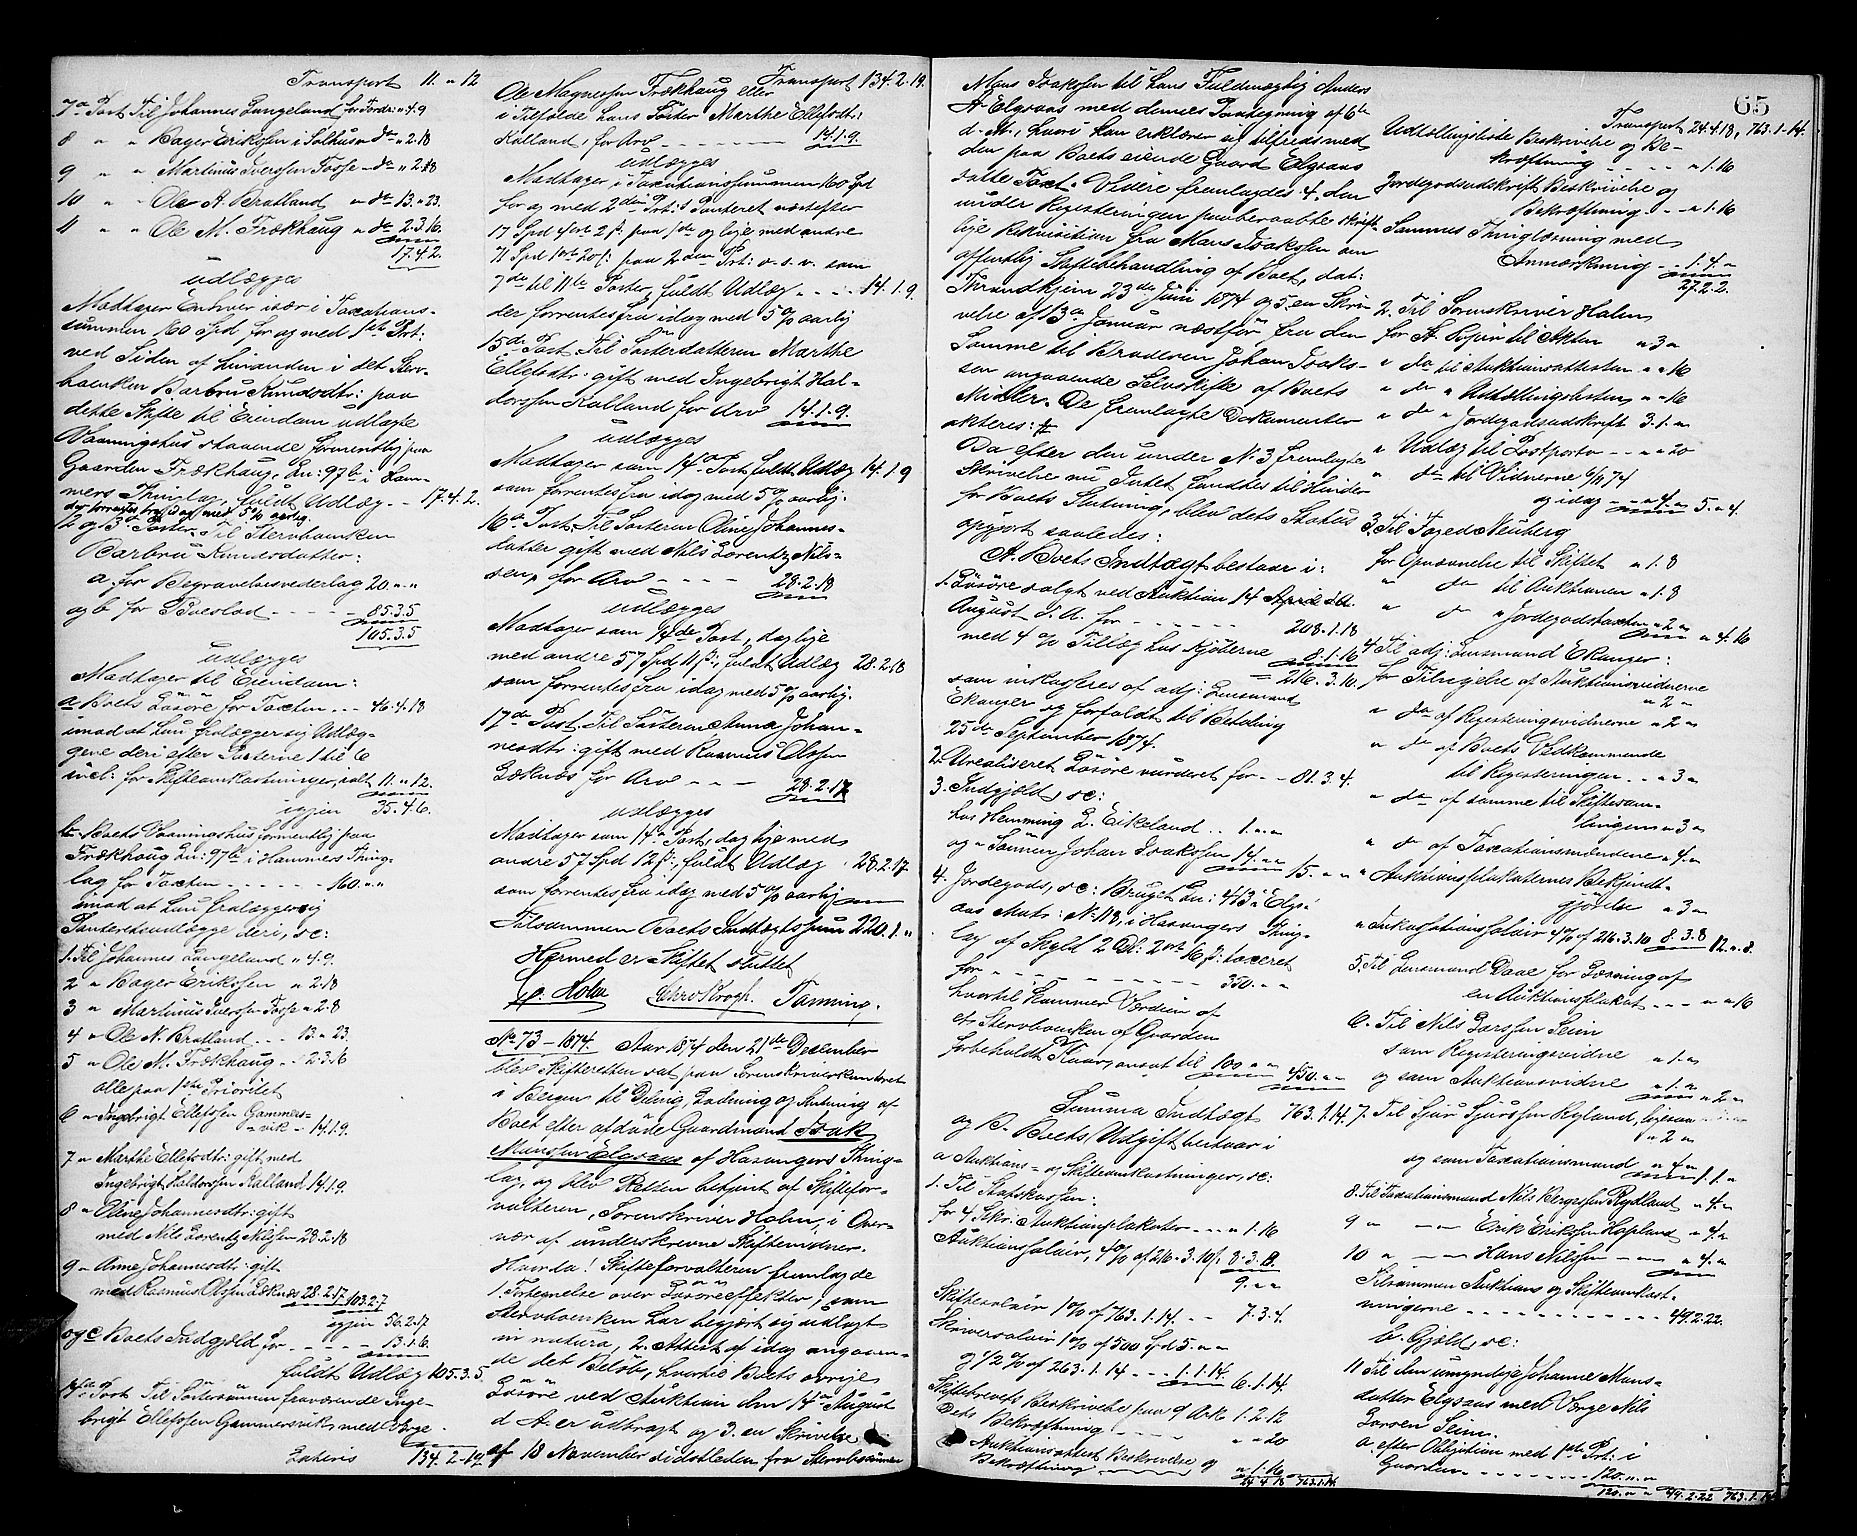 Transport 11 " 12
7de Post Til Johannes Langeland for Fordr: " 4.9
8 " " Bager Eriksen i Solhus " do " 2.18
9 " " Martinus Iversen Fosse " do " 2.18
10 " " Ole A. Bratland " do 13. " 23.
11 " " Ole M. Trækhaug " do 2.3.16.
17.4.2.
udlægges
Modtager Enhver især i Taxations-
summen 160 Spd for og med 1ste Prt:
ved Siden af hinanden i det Sterv-
boenken Barbru Knudsdtr: paa
dette Skifte til Eiendom udlagte
Vaaningshus staaende formentlig paa
Gaarden Trækhaug, Ln: 97b i Ham-
mers Thinglag, fuldt Udlæg - - 17.4.2.
der forrentes fra idag med 5% aarlig.
12 og 13de Poster. Til Stervboenken
Barbru Knudsdatter:
a. for Begravelsesvederlag 20. " "
og b for Boeslod - - - - 85.3.5
105.3.5
udlægges
Modtager til Eiendom:
a. Boets Løsøre for Taxten - - 46.4.18
imod at hun fralægger sig Udlæg-
gene deri efter Posterne 1 til 6
incl: for Skifteomkostninger, odelt 11. " 12.
igjen 35.4.6.
b. Boets Vaaningshus formentlig paa
Trækhaug Ln: 97b i Hammers Thing-
lag for Taxten - - - - - 160. " "
imod at hun fralægger sig
Panteretsudlægge deri, sc:
1. Til Johannes Langeland " 4.9.
2 " Bager Eriksen " 2.18
3 " Martinus Iversen Fosse " 2.8
4 " Ole N. Bratland - - 13 " 23.
5 " Ole M. Trækhaug - - 2.3.16
alle paa 1ste Prioritet
6 " Ingebrigt Ellefsen Gammers-
vik - 14.1.9.
7 " Marthe Ellefsdtr: gift med
Ingebrigt Haldorsen Kalland 14.1.9.
8 " Oline Johannesdtr: gift
med Nils Lorentz Nilsen 28.2.18
9 " Anne Johannesdtr: gift
med Rasmus Olsen Løknæs 28.2.17 103.2.7
igjen 56.2.17
og c. Boets Indgjæld for - - - - 13.1.6.
fuldt Udlæg 105.3.5.
14de Post Til Søstersønnen fraværende Inge-
brigt Ellefsen Gammersvik med Værge
Lateris 134.2.14
Transport 134.2.14.
Ole Magnesen Trækhaug eller
i Tilfælde hans Søster Marthe Ellefsdtr:
Kalland, for Arv - - - - 14.1.9.
udlægges
Modtager i Taxationssummen 160 Spd
for og med 2den Prt:s Panteret næstefter
17 Spd 4ort 2ß. paa 1ste og lige med andre
71 Spd 1ort 20ß: paa 2den Prt: o.s.v. som
7de til 11te Poster, fuldt Udlæg - - - 14.1.9.
der forrentes fra idag med 5% aarlig
15de Post. Til Søsterdatteren Marthe
Ellefsdtr: gift med Ingebrigt Hal-
dorsen Kalland for Arv 14.1.9.
udlægges
Modtager som 14de Post, fuldt Udlæg 14.1.9
som forrentes fra idag med 5% aarlig.
16de Post. Til Søsteren Oline Johannes-
datter gift med Nils Lorentz Nils-
sen, for Arv - - - - 28.2.18
udlægges
Modtager som 14de Post, dog lige
med andre 57 Spd 11ß:, fuldt Udlæg 28.2.18
som forrentes fra idag med 5% aarlig.
17de Post. Til Søsteren Anna Johan-
nesdtr: gift med Rasmus Olsen
Løknæs for Arv - - - 28.2.17
udlægges
Modtager som 14de Post, dog lige med
andre 57 Spd 12ß:, fuldt Udlæg 28.2.17.
som forrentes fra idag med 5% aarlig
Tilsammen Boets Indtægtssum 220.1. "
Hermed er Skiftet sluttet
O. Holm Chr. Krogh. Tanning.
No 73 - 1874. Aar 1874 den 21de Desember
blev Skifteretten sat paa Sorenskriverkontoret
i Bergen til Deling, Lodning og Slutning af
Boet efter afdøde Gaardmand Isak
Monsen Elgsaas af Hosangers Thing-
lag, og blev Retten betjent af Skiftefor-
valteren, Sorenskriver Holm, i Over-
vær af underskrevne Skiftevidner.
Hvorda! Skifteforvalteren fremlagde
1. Fortegnelse over Løsøreeffekter, som
Stervboenken har begjært sig udlagt
in natura, 2. Attest af idag angaaen-
de det Beløb, hvortil Boets øvrige
Løsøre ved Auktion den 14de August
d. A. er udbragt og 3. en Skrivelse
af 18 November sidstleden fra Stervboesønnen
65
Mons Isaksen til hans Fuldmægtig Anders
A. Elgsaas med dennes Paategning af 6te
d. M., hvori han erklærer sig tilfreds med
den paa Boets eiende Gaard Elgsaas
satte Taxt. Videre fremlagdes 4. den
under Registreringen paaberaabte skrift-
lige Rekvisition fra Mons Isaksen om
offentlig Skiftebehandling af Boet, dat:
Throndhjem 23de Juni 1874 og 5. en Skri-
velse af 13de Januar næstfør fra den
Samme til Broderen Johan Isak-
sen angaaende Selvskifte af Boets
Midler. De fremlagte Dokumenter
akteres:
Da efter den under N 3 fremlagte
Skrivelse nu Intet fandtes til Hinder
for Boets Slutning, blev dets Status
opgjort saaledes:
A. Boets Indtægt bestaar i:
1. Løsøre solgt ved Auktion 14
August d. A. for - - - - 208.1.18
med 4% Tillæg hos Kjøberne 8.1.16
= 216.3.10.
som inkasseres af adj: Lensmand
Ekanger og forfaldt til Betaling
25de September 1874.
2. Urealiseret Løsøre vurderet for - - 81.3.4.
3. Indgjæld, sc:
hos Hemming L. Eikeland - - 1. " "
og " Sønnen Johan Isaksen 14. " " 15. " "
4. Jordegods, sc: Bruget Ln: 413 i Elgs-
aas Matr: No 118, i Hosangers Thing-
lag af Skyld 2 D: 2ort 16ß: taxeret
for - - - - - - - - 350. " "
hvortil kommer Værdien af
et Stervboenken af Gaarden
forbeholdt Kaar, ansat til 100 " " 450. " "
Summa Indtægt 763.1.14.
og B. Boets Udgift bestaar i
a. Auktions- og Skifteomkostninger, sc:
1. Til Statskassen:
for 4 Skr: Auktionsplakater - - - " 1.16
Auktionssalair, 4% af 216.3.10ß, 8.3.8
9. " "
Skiftesalair 1% af 763.1.14. - - 7.3.4.
Skriversalair 1% af 500 Spd 5. " "
og 1/2% af 263.1.14 - - - 1.1.14. 6.1.14.
Skiftebrevets Beskrivelse paa 9 Ark 1.2.12
Dets Bekræftning - - - - " " 20
Auktionsattest Beskrivelse og
Bekræftning " 1.16
24.4.18 763.1.14.
Transport 24.4.18, 763.1.14.
Udlodningsliste Beskrivelse og Be-
kræftning - - - - " 1.16
Jordegodsudskrift Beskrivelse og
Bekræftning - - " 1.16
Sammes Thinglæsning med
Anmærkning - - 1.4. "
27.2.2.
2. Til Sorenskriver Holm
for St. Papir til Akten " 3 "
" do til Auktionsattesten " " 16
" do " Udlodningslisten " " 16
" do " Jordegodsudskrift 3.1. "
" Udlæg til Postporto - - " " 20
" do til Vidnerne 6/11 74
og idag - - " 4. " 5. " 4.
3. Til Foged Neuberg
for Opnævnelse til Skiftet " 1.8
" do til Auktionen " 1.8
" do " Jordegodstaxten " 2 " " 4.16
4. Til adj: Lensmand Ekanger:
for Tilsigelse af Auktionsvidnerne
" 2 "
" do af Registreringsvidnerne " 2 "
" do af Boets Vedkommende
til Registreringen - - " 3 "
" do af samme til Skiftesam-
lingen " 3 "
" do af Taxationsmændene " 4. "
" Auktionsplakaternes Bekjendt-
gjørelse " 3 "
" Inkassationssalair 4% af 216.3.10 8.3.8 12. " 8.
5. Til Lensmand Daae for Læsning af
en Auktionsplakat - - - " " 16
6. Til Nils Larssen Seim
som Registreringsvidne " 1. "
og som Auktionsvidne " 1. "
" 2 "
7. Til Sjur Sjursen Kyland, ligesaa
" 2 "
og som Taxationsmand " 4 " 1.1. "
8. Til Taxationsmand Nils Bergesen Rydland " 4. "
9 " " Erik Eriksen Hopland " 4. "
10 " " Hans Nilssen - - " 4. "
Tilsammen Auktions og Skifteomkost-
ningerne - - - - - - 49.2.22.
b. Gjæld, sc:
11. Til den umyndige Johanne Mons-
datter Elgsaas med Værge Nils
Larsen Seim.
a. efter Obligation med 1ste Prt: i
Gaarden - - - - - 120. " "
120. " " 49.2.22 763.1.14